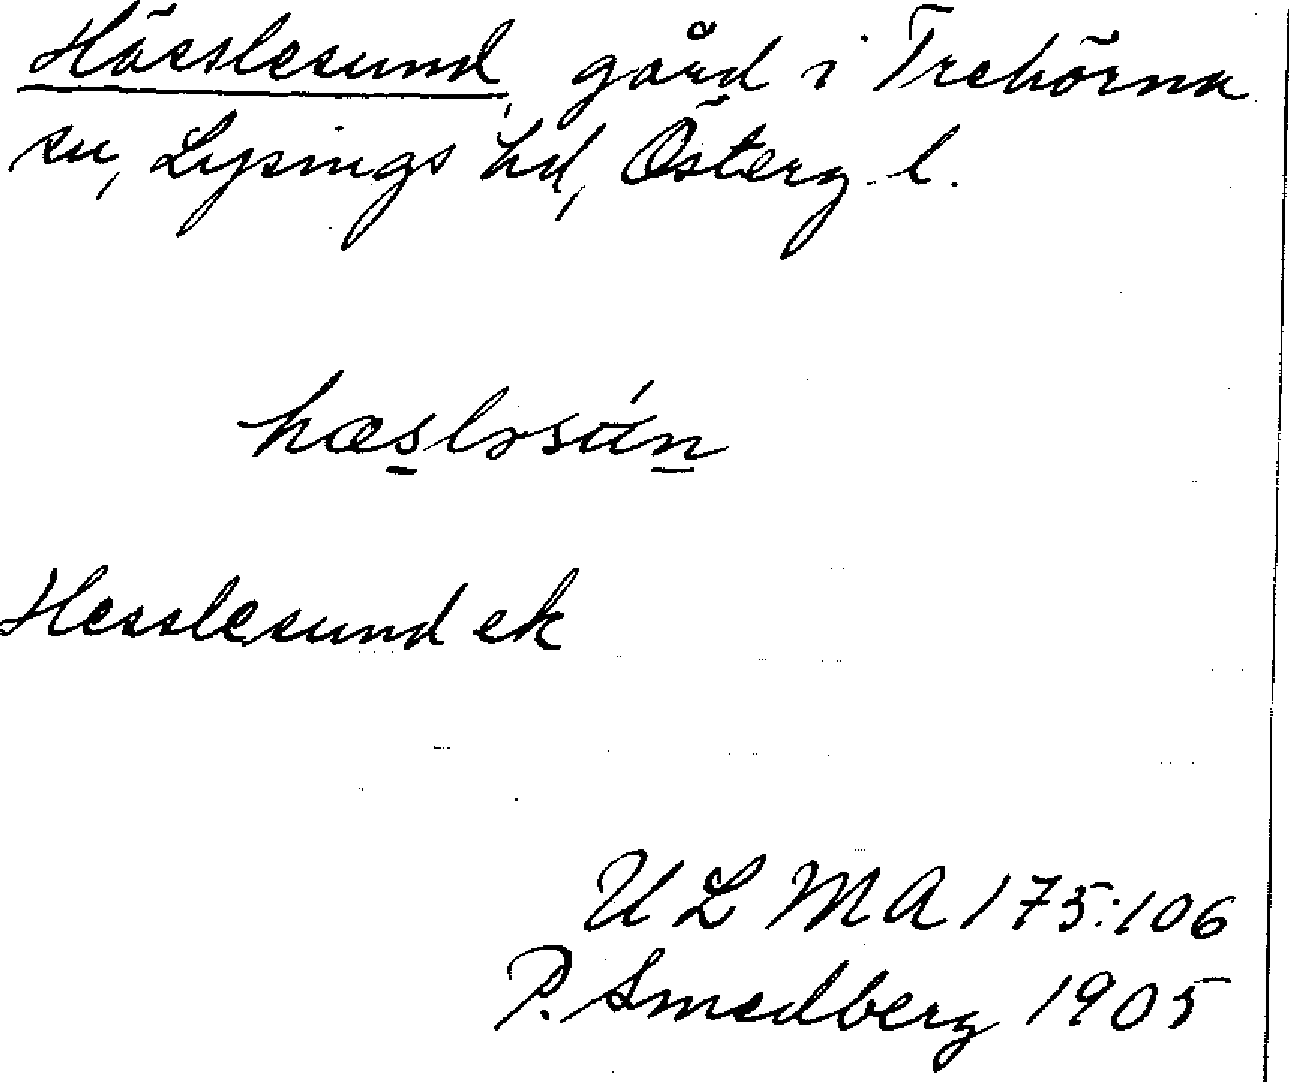 Hässlesund, gård i Trehörna
sn, Lysings hd, Österg. l.
hæslɔsún
Hesslesund ek
ULMA 175:106
P. Smedberg 1905